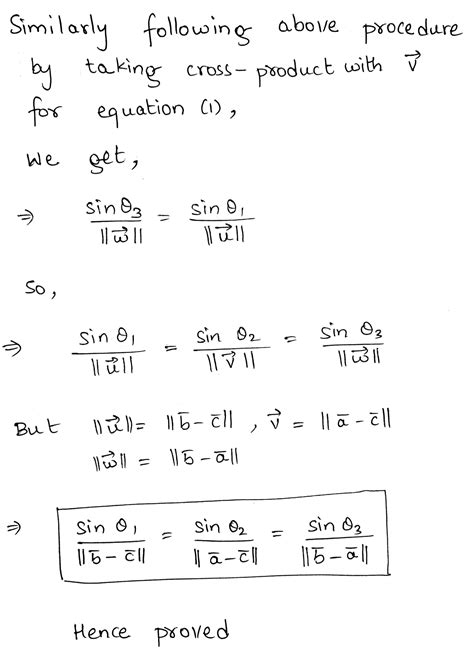 Similarly following above procedure
by taking cross-product with v⃗
for equation (1),
We get,
⇒ sin θ₃ / ||w⃗|| = sin θ₁ / ||u⃗||
So,
⇒ sin θ₁ / ||u⃗|| = sin θ₂ / ||v⃗|| = sin θ₃ / ||w⃗||
But ||u⃗|| = ||b̄ - c̄||, v⃗ = ||ā - c̄||
||w⃗|| = ||b̄ - ā||
⇒ sin θ₁ / ||b̄ - c̄|| = sin θ₂ / ||ā - c̄|| = sin θ₃ / ||b̄ - ā||
Hence proved